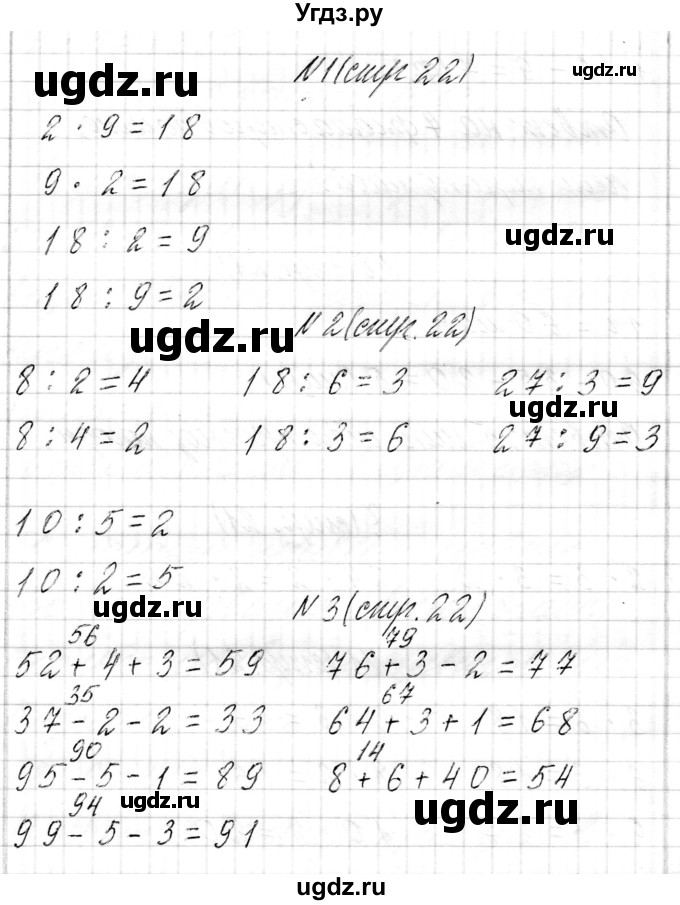 Угдз.ру
ugdz.ru
N1(стр 22)
ugdz.ru
2 : 9 = 18
9 · 2 = 18
18 : 2 = 9
ugdz.ru
18 : 9 = 2
N 2(стр. 22)
ugdz.ru
8 : 2 = 4 18 : 6 = 3 27 : 3 = 9
ugdz.ru
8 : 4 = 2 18 : 3 = 6 27 : 9 = 3
10 : 5 = 2
10 : 2 = 5
ugdz.ru
N 3(стр. 22)
56 79
52 + 4 + 3 = 59 76 + 3 - 2 = 77
35 67
37 - 2 - 2 = 33 64 + 3 + 1 = 68
90 14
95 - 5 - 1 = 89 8 + 6 + 40 = 54
94 ugdz.ru
ugdz.ru
99 - 5 - 3 = 91
ugdz.ru